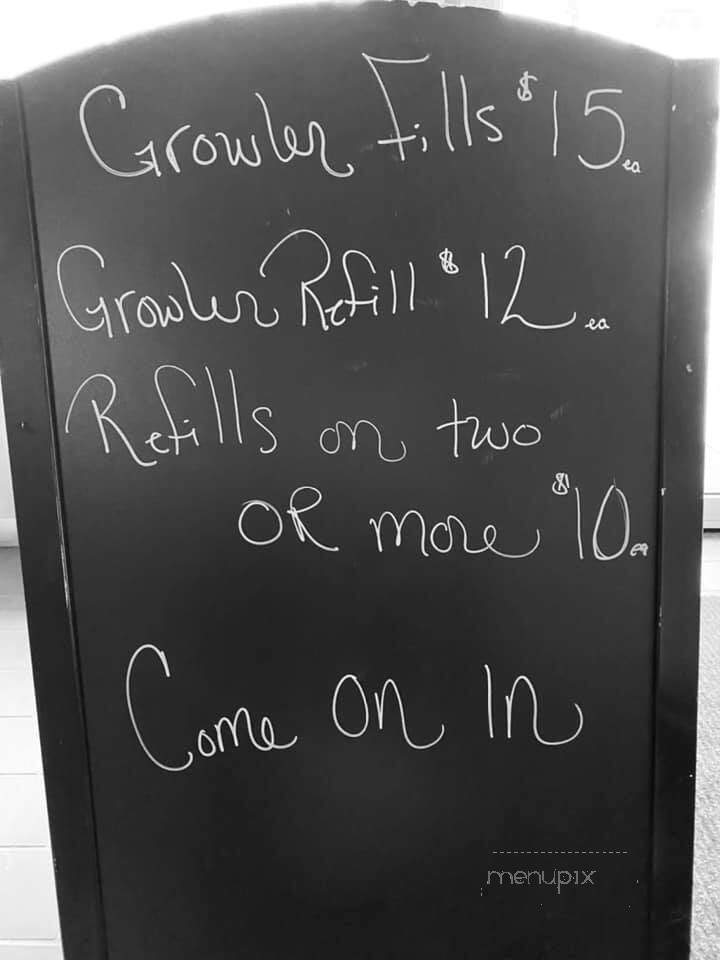 Growler Fills $15 ea
Growler Refill $12 ea
Refills on two
OR more $10 ea
Come On In
menupix